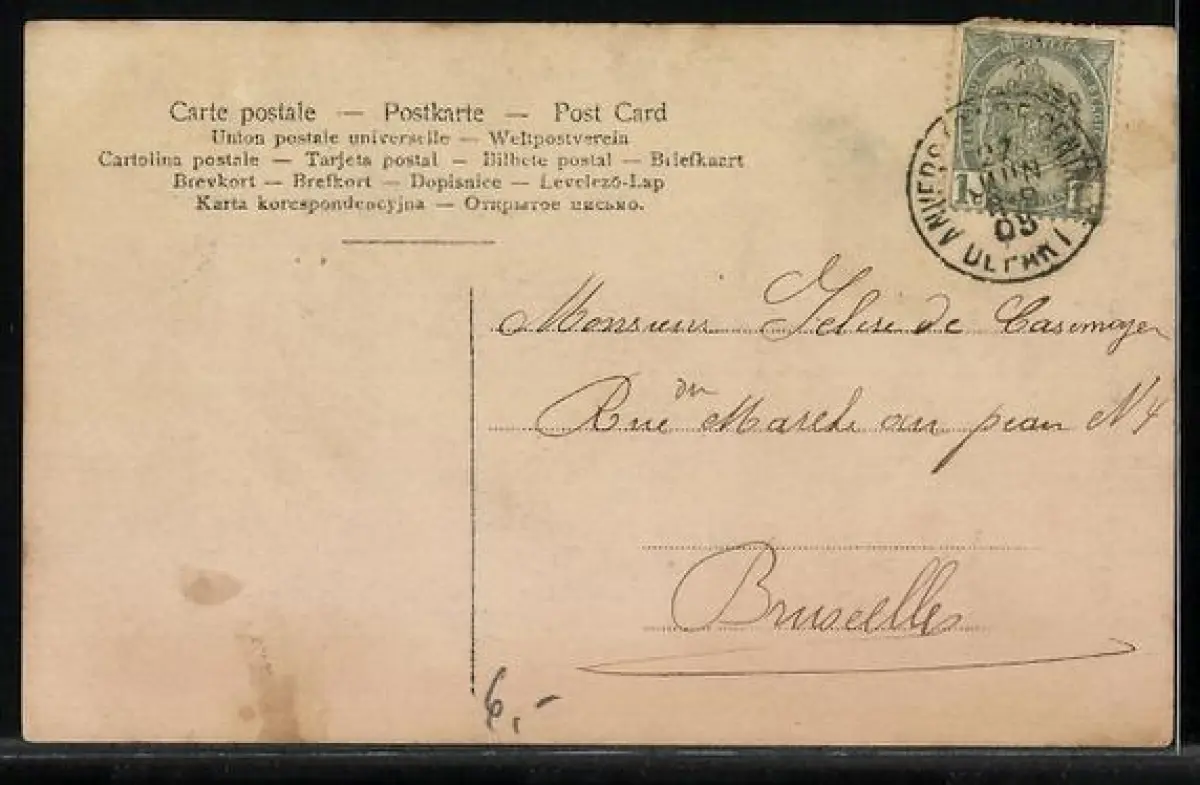 Carte postale — Postkarte — Post Card
Union postale universelle — Weltpostverein
Cartolina postale — Tarjeta postal — Bilhete postal — Briefkaart
Brevkort — Brefkort — Dopisnice — Levelező-Lap
Karta korespondencyjna — Открытое письмо.
ANVERS CENTR
JUIN
05
DEPART
1 1
Monsieur de Casemayer
Rue du Marché au N 4
Bruxelles
6,-